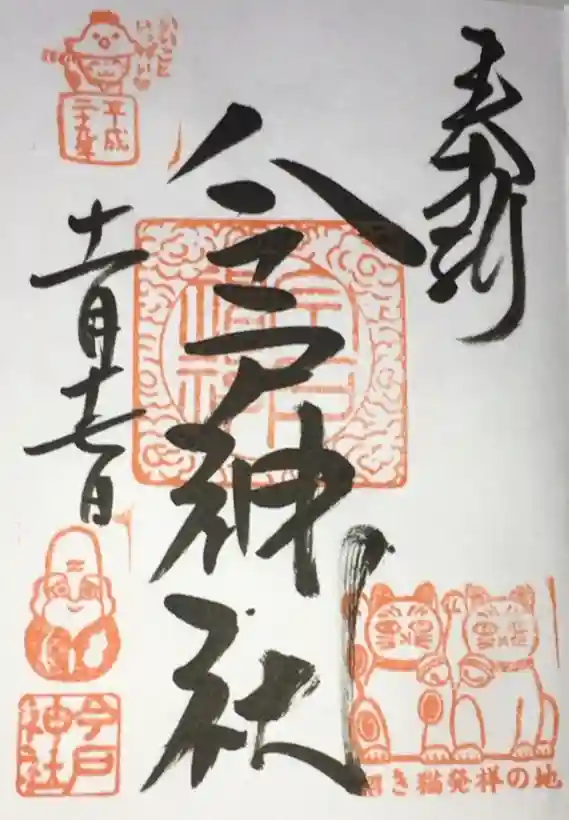 奉拝
今戸神社
十一月十七日
いいこと
平成
二十九年
今戸
神社
招き猫発祥の地